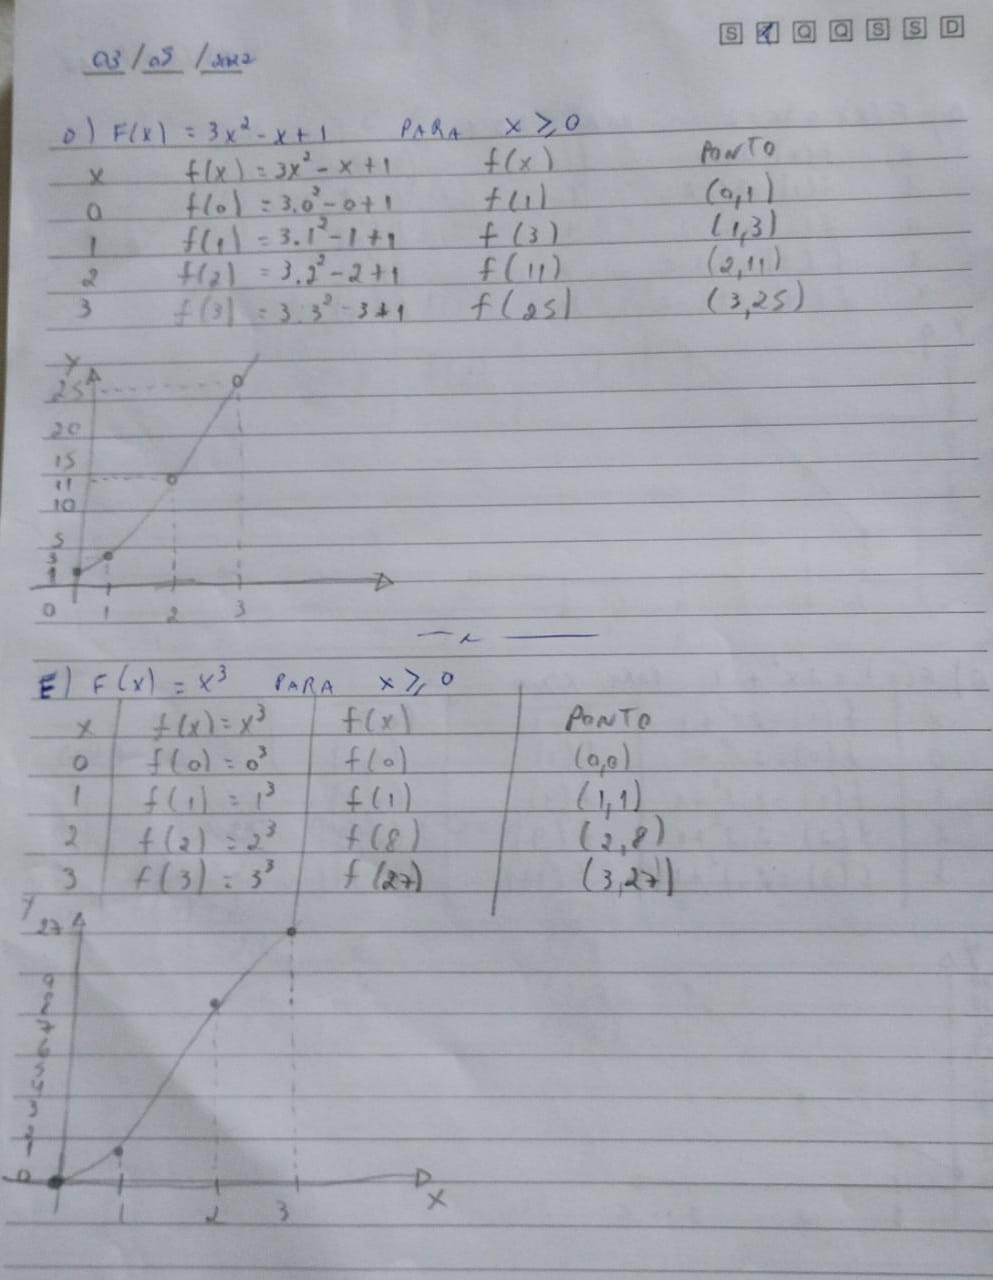 S T Q Q S S D
03/05/2022
D) F(x) = 3x² - x + 1 PARA x ≥ 0
x f(x) = 3x² - x + 1 f(x) PONTO
0 f(0) = 3.0² - 0 + 1 f(1) (0,1)
1 f(1) = 3.1² - 1 + 1 f(3) (1,3)
2 f(2) = 3.2² - 2 + 1 f(11) (2,11)
3 f(3) = 3.3² - 3 + 1 f(25) (3,25)
y
25
20
15
11
10
5
3
1
0 1 2 3
E) F(x) = x³ PARA x ≥ 0
x f(x) = x³ f(x) PONTO
0 f(0) = 0³ f(0) (0,0)
1 f(1) = 1³ f(1) (1,1)
2 f(2) = 2³ f(8) (2,8)
3 f(3) = 3³ f(27) (3,27)
Y
27
8
7
6
5
4
3
2
1
0
1 2 3 X